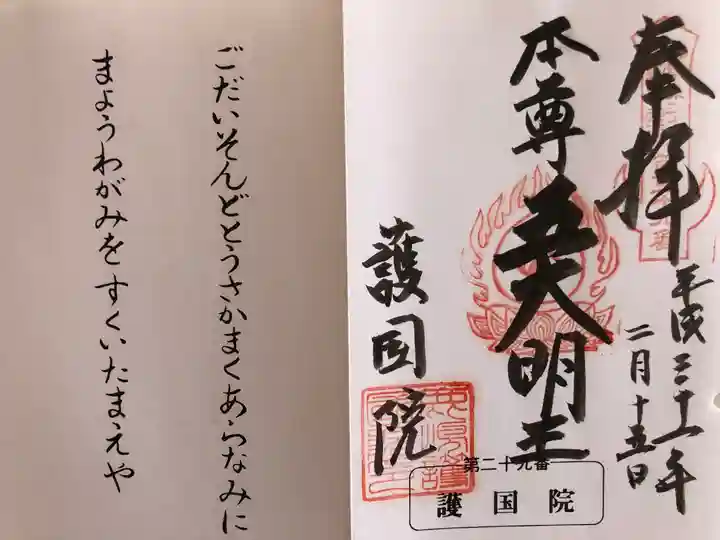 奉拝
平成三十一年
二月十五日
本尊 五大明王
護国院
第二十九番
護国院
ごだいそんどとうさかまくあらなみに
まようわがみを すくいたまえや